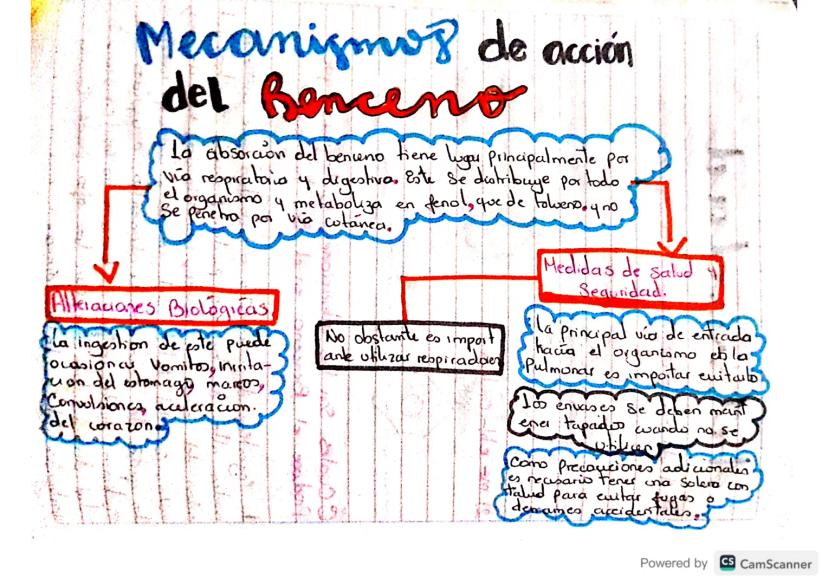 Mecanismos de acción
del Benceno
La absorción del benceno tiene lugar principalmente por
vía respiratoria y digestiva. Este se distribuye por todo
el organismo y metaboliza en fenol, que de tolueno. y no
se penetra por vía cutánea.
Alteraciones Biológicas
La ingestion de este puede
ocasionar vomitos, irrita-
cion del estomago mareos,
Convulsiones, aceleracion.
del corazon
Medidas de Salud y
Seguridad.
No obstante es import
ante utilizar respiradores
La principal vía de entrada
hacía el organismo es la
Pulmonar es importar evitarlo
Los envases se deben mant
ener tapados cuando no se
utilicen
Como Precauciones adicionales
es necesario tener una solera con
talud para evitar fugas o
derrames accidentales.
Powered by CS CamScanner